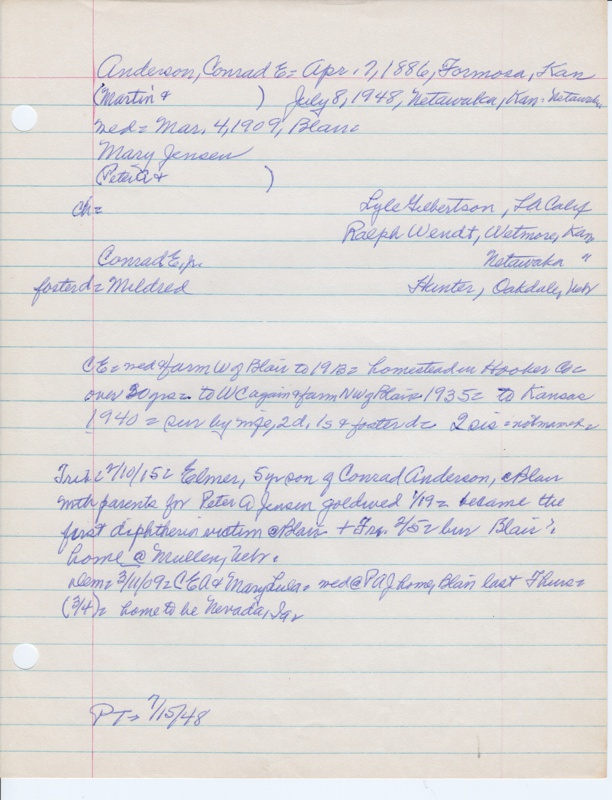 Anderson, Conrad E = Apr. 7, 1886, Formosa, Kan
(Martin & ) July 8, 1948, Netawaka, Kan = Netawaka
wed = Mar. 4, 1909, Blair =
Mary Jensen
(Peter A & )
ch = Lyle Gilbertson, LA Calif
Ralph Wendt, Wetmore, Kan
Conrad E, Jr. Netawaka "
foster d = Mildred Hunter, Oakdale, Nebr
CE = wed & farm W of Blair to 1913 = homestead in Hooker Co =
over 20 yrs = to WC again & farm NW of Blair = 1935 = to Kansas
1940 = sur by wife, 2d, 1s & foster d = 2 sis = not named =
Trib = 2/10/15 = Elmer, 5 yr son of Conrad Anderson, @ Blair
with parents for Peter A Jensen gold wed 1/19 = became the
first diphtheria victim @ Blair + Fri. 2/5 = bur Blair =
home @ Mullen, Nebr =
Dem = 3/11/09 = CEA & Mary = wed @ PAJ home, Blair last Thurs =
(3/4) = home to be Nevada, Ia =
PT = 7/15/48